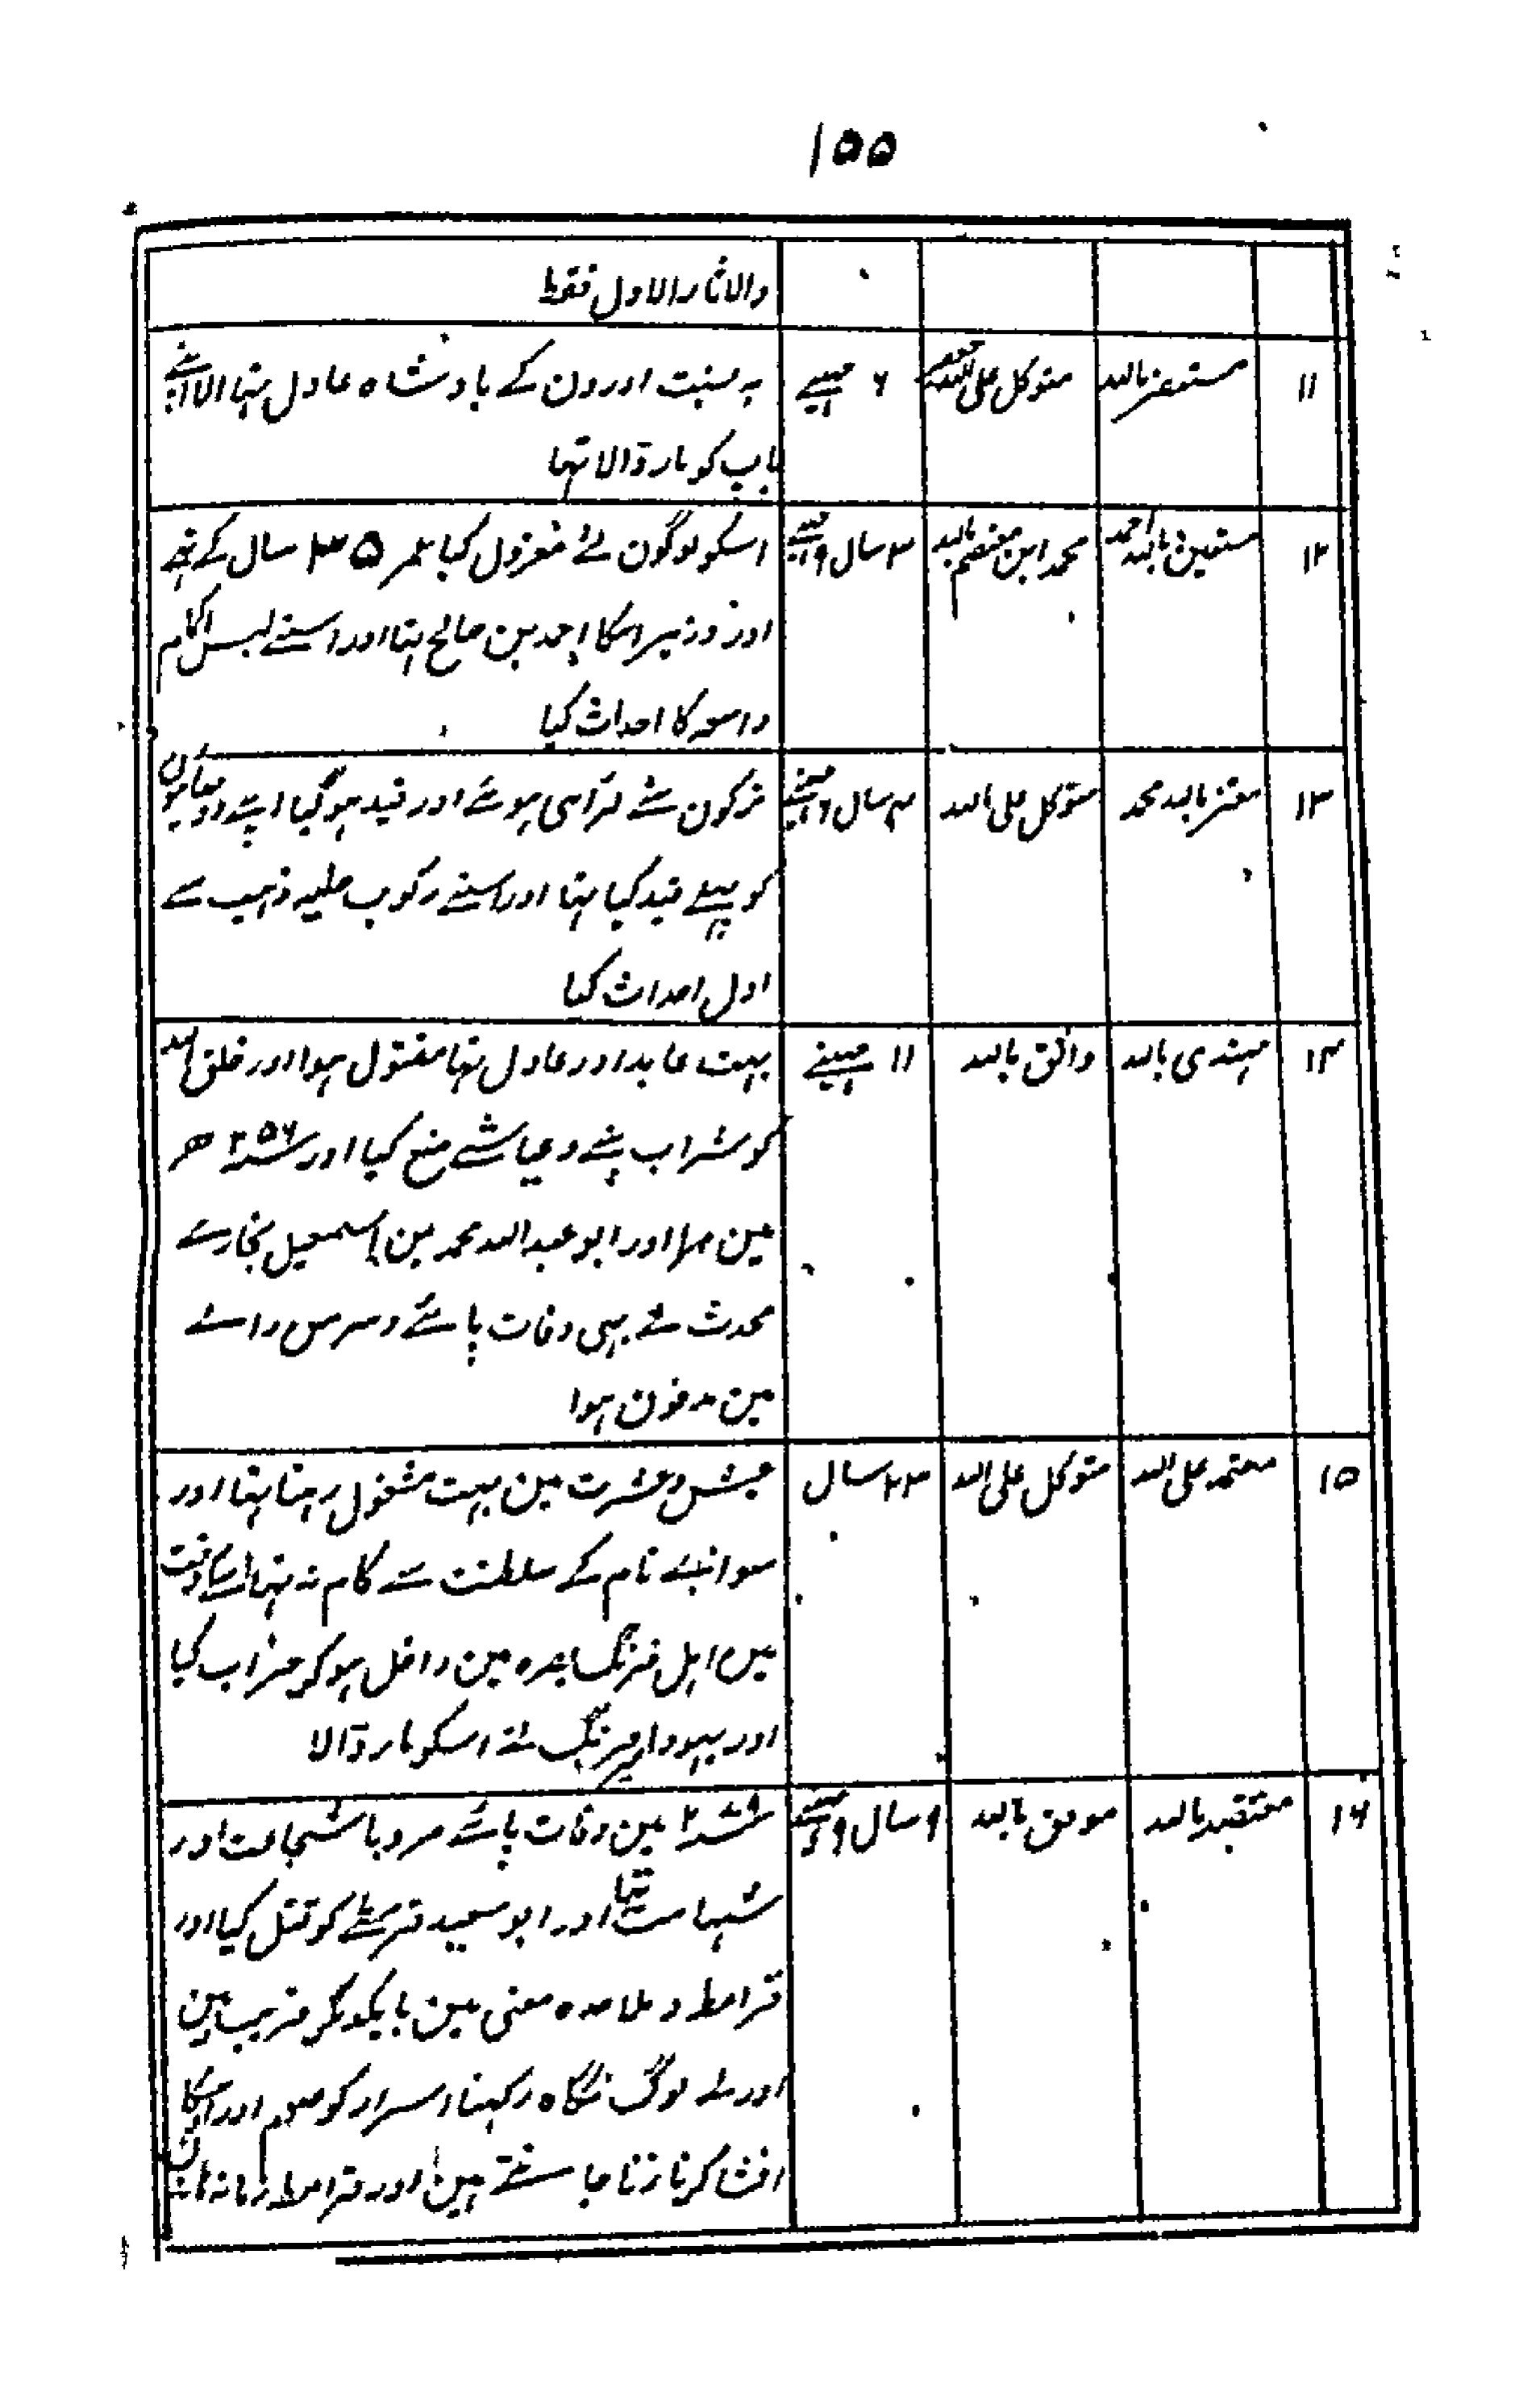 ۱۵۵
والاثار الاول فقط
۱۱ مستنصر بالله متوکل علی الله ۶ مہینے به نسبت اورون کے بادشاه عادل تہا الا اپنے
باپ کو مار ڈالا تہا
۱۲ مستعین بالله احمد محمد ابن معتصم بالله ۳ سال ۹ مہینے اسکو لوگون نے معزول کیا عمر ۳۵ سال کے تہے
اور وزیر اسکا احمد بن صالح تہا اور اسنے لبس اکمام
واسعہ کا احداث کیا
۱۳ معتز بالله محمد متوکل علی الله ۴ سال ۶ مہینے ترکون سے لڑائی ہوئے اور قید ہوگیا اپنے دو بہائیون
کو پہلے قید کیا تہا اور اسنے رکوب حلیہ ذہب سے
اول احداث کیا
۱۴ مہتدی بالله واثق بالله ۱۱ مہینے بہت عابد اور عادل تہا مقتول ہوا اور خلق الله
کو شراب پینے وعیاشے منع کیا اور سنہ ۲۵۶ ھ
مین مرا اور ابو عبد الله محمد بن اسمعیل بخارے
محدث نے بہی وفات پائے و سرمن رائے
مین مدفون ہوا
۱۵ معتمد علی الله متوکل علی الله ۲۳ سال عیش وعشرت مین بہت مشغول رہتا تہا اور
سوا اپنے نام کے سلطنت سے کام نہ تہا اسکے وقت
میں اہل فرنگ بصره مین داخل ہوکر خراب کیا
اور یہود اہل فرنگ نے اسکو مار ڈالا
۱۶ معتضد بالله موفق بالله ۹ سال ۹ مہینے سنہ ۲۸۹ مین وفات پائے مرد با شجاعت اور
شہامت تہا اور ابو سعید قرمطے کو قتل کیا اور
قرامط و ملاحده معنی مین بایکدیگر قریب ہین
اور یے لوگ نگاه رکہنا اسرار کو صوم اور اسکا
افشا کرنا زنا جانتے ہین اور قرامط زمانہ